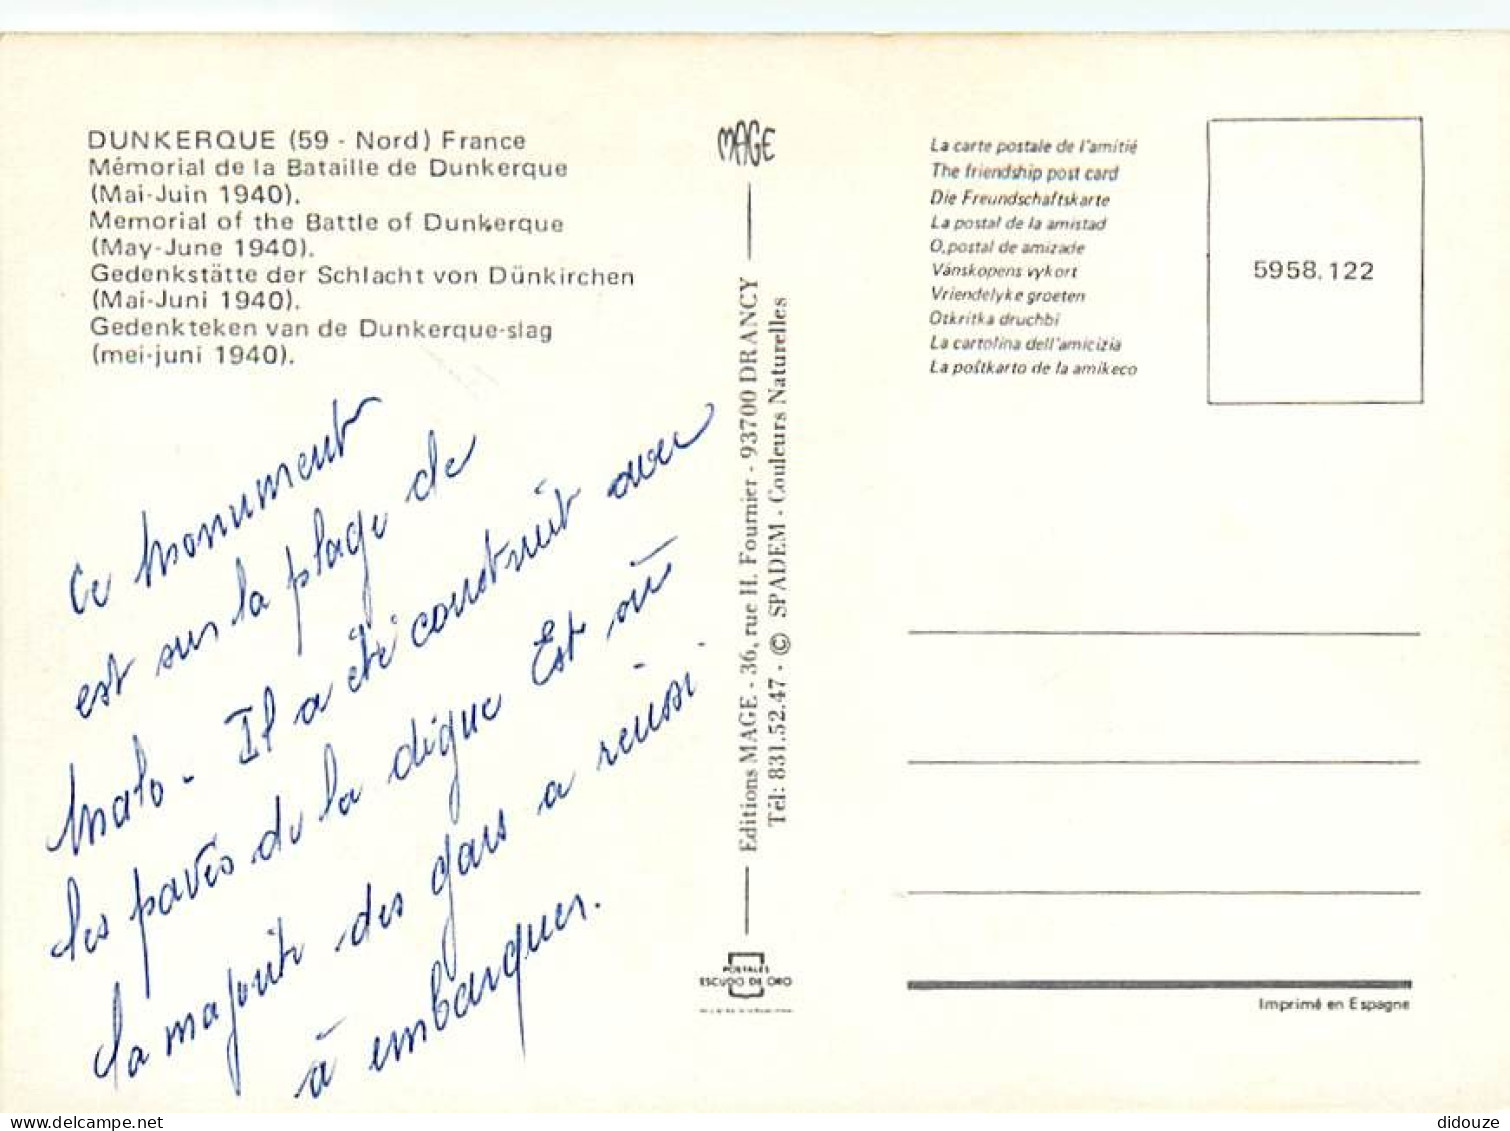 DUNKERQUE (59 - Nord) France
Mémorial de la Bataille de Dunkerque
(Mai-Juin 1940).
Memorial of the Battle of Dunkerque
(May-June 1940).
Gedenkstätte der Schlacht von Dünkirchen
(Mai-Juni 1940).
Gedenkteken van de Dunkerque-slag
(mei-juni 1940).
Ce monument
est sur la plage de
Malo - Il a été construit avec
les pavés de la digue Est où
la majorité des gars a réussi
à embarquer.
MAGE
Editions MAGE - 36, rue H. Fournier - 93700 DRANCY
Tél: 831.52.47 - © SPADEM - Couleurs Naturelles
POSTALES
ESCUDO DE ORO
La carte postale de l'amitié
The friendship post card
Die Freundschaftskarte
La postal de la amistad
O,postal de amizade
Vánskopens vykort
Vriendelyke groeten
Otkritka druchbi
La cartolina dell'amicizia
La poŝtkarto de la amikeco
5958.122
Imprimé en Espagne
delcampe.net
didouze